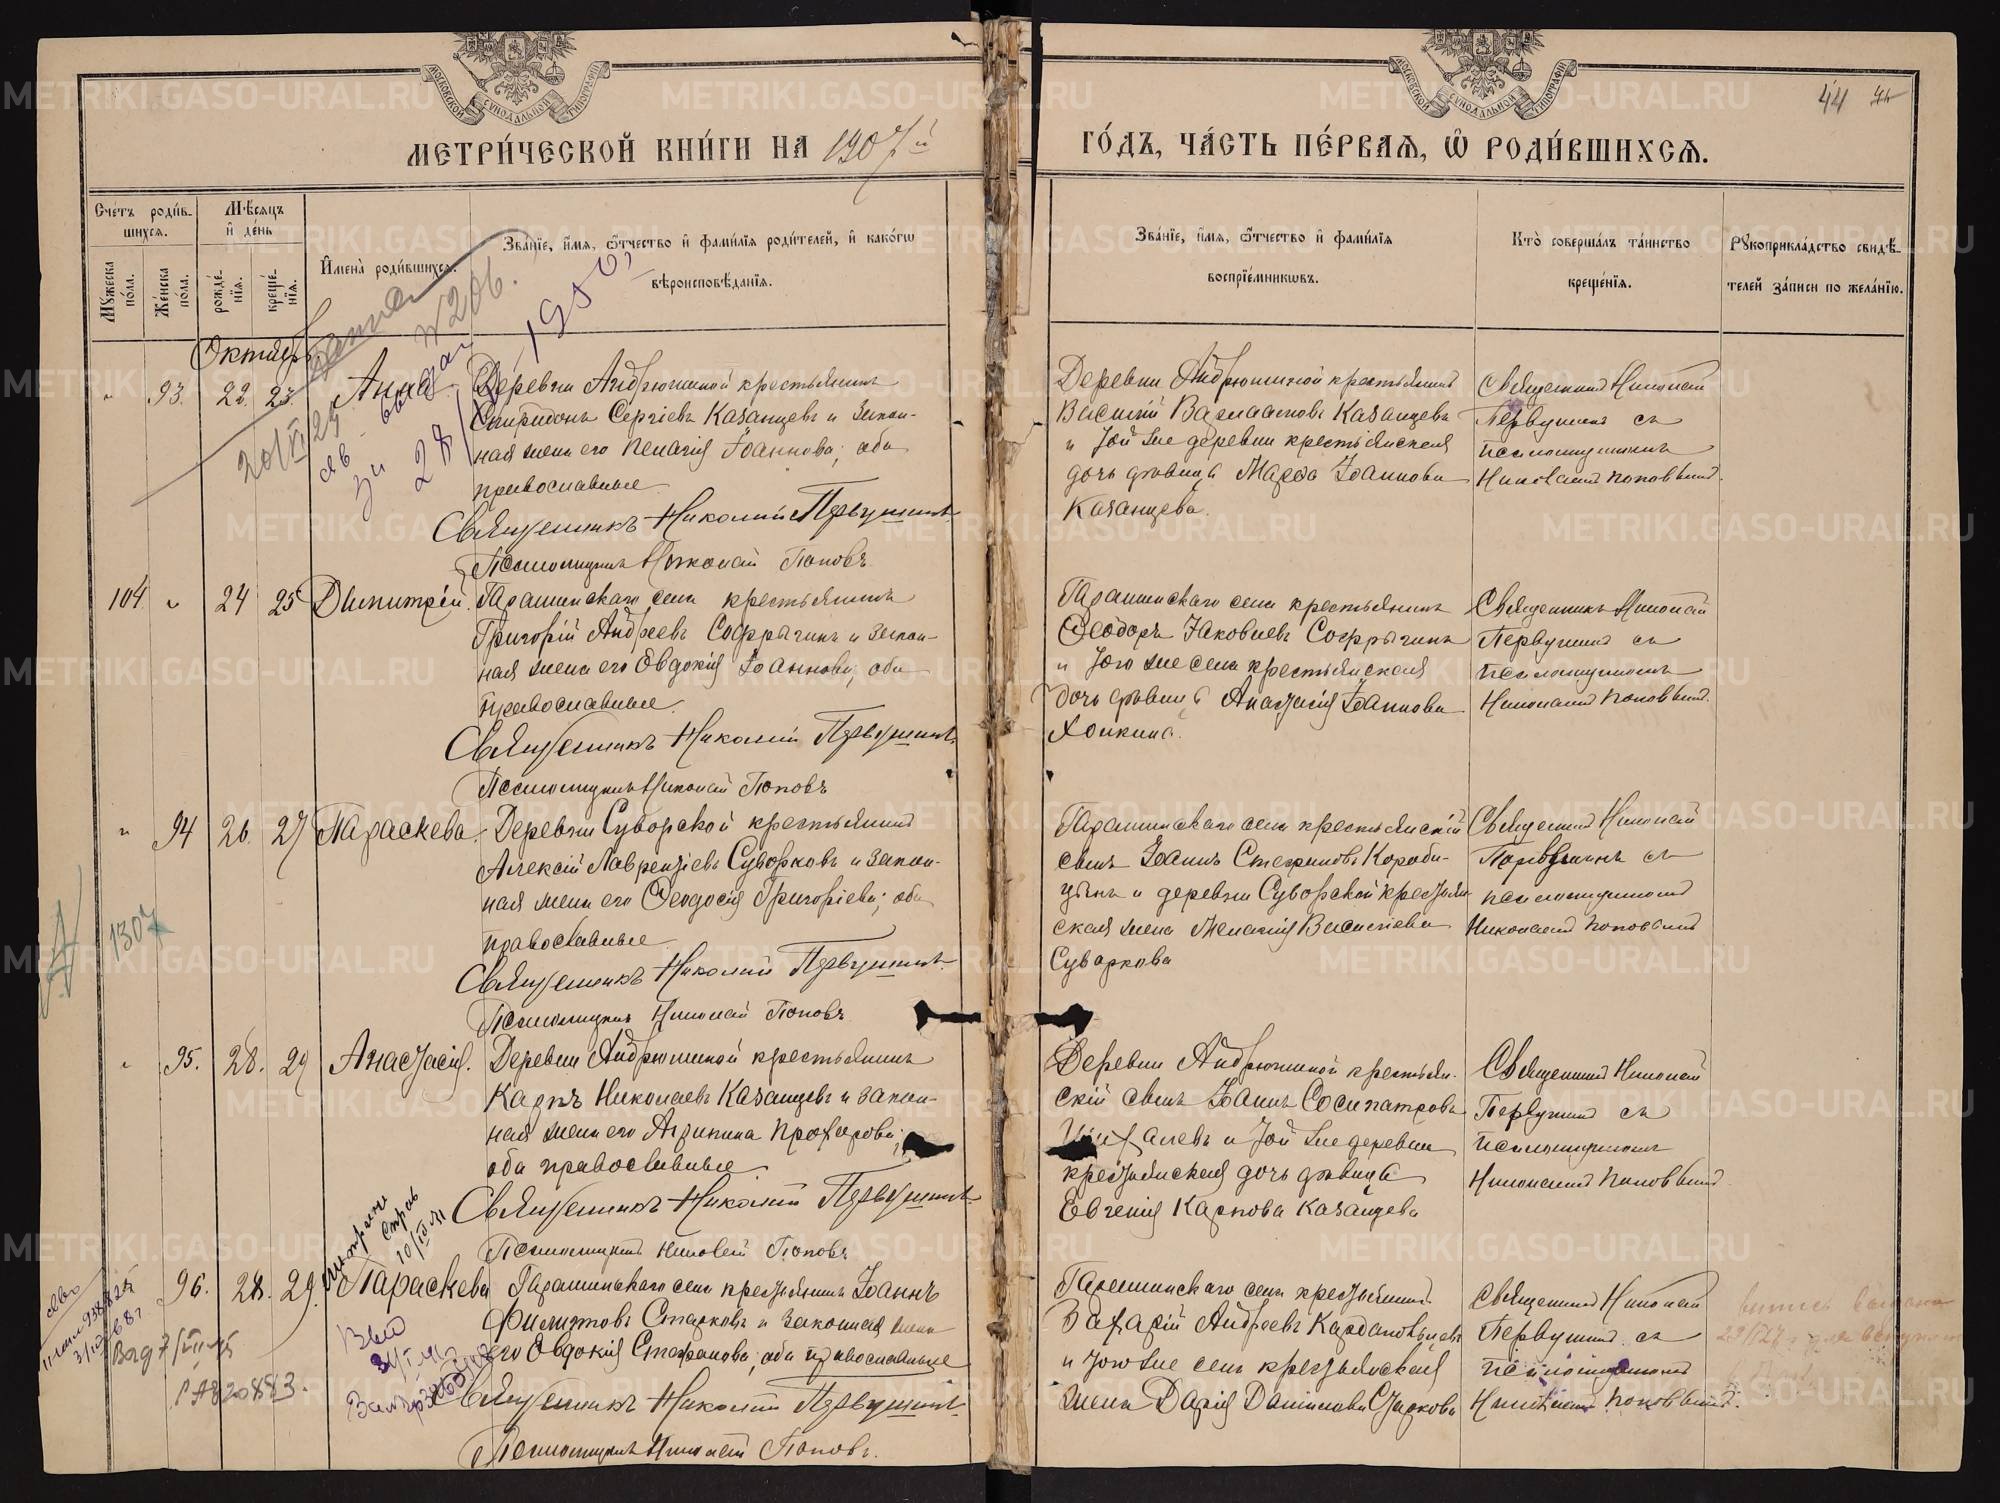 МОСКОВСКОЙ СУНОДАЛЬНОЙ ТИПОГРАФІИ
МОСКОВСКОЙ СУНОДАЛЬНОЙ ТИПОГРАФІИ
44
МЕТРИ́ЧЕСКОЙ КНИ́ГИ НА 1907й
ГО́ДЪ, ЧА́СТЬ ПЕ́РВАЯ, Ѡ РОДИ́ВШИХСЯ.
Сче́тъ роди́вшихся.
Мѣ́сяцъ и҆ де́нь
Му́жеска по́ла.
Же́нска по́ла.
рожде́нїя.
креще́нїя.
И҆мена̀ роди́вшихся.
Зва́нїе, и҆́мя, ѻ҆́тчество и҆ фами́лїя роди́телей, и҆ како́гѡ
вѣроисповѣ́данїя.
Зва́нїе, и҆́мя, ѻ҆́тчество и҆ фами́лїя
воспрїе́мникѡвъ.
Кто̀ соверша́лъ та́инство
креще́нїя.
Рꙋкоприкла́дство свидѣ́телей за́писи по жела́нїю.
Октябрь
93. 22. 23. Анна
Деревни Андрюшиной крестьянинъ
Спиридонъ Сергіевъ Казанцевъ и закон-
ная жена его Пелагія Іоаннова; оба
православные
Священникъ Николай Первушинъ
Псаломщикъ Николай Поповъ
Деревни Андрюшиной крестьянинъ
Василій Варлаамовъ Казанцевъ
и той же деревни крестьянская
дочь дѣвица Марѳа Іоаннова
Казанцева.
Священникъ Николай
Первушинъ съ
псаломщикомъ
Николаемъ Поповымъ.
104 " 24 25 Димитрій.
Гарашинскаго села крестьянинъ
Григорій Андреевъ Софрыгинъ и закон-
ная жена его Евдокія Іоаннова; оба
православные.
Священникъ Николай Первушинъ
Псаломщикъ Николай Поповъ
Гарашинскаго села крестьянинъ
Ѳеодоръ Іаковлевъ Софрыгинъ
и того же села крестьянская
дочь дѣвица Анастасія Іоаннова
Хонкина.
Священникъ Николай
Первушинъ съ
псаломщикомъ
Николаемъ Поповымъ.
" 94 26. 27 Параскева.
Деревни Суворской крестьянинъ
Алексій Лаврентіевъ Суворковъ и закон-
ная жена его Ѳеодосія Григоріева; оба
православные
Священникъ Николай Первушинъ.
Псаломщикъ Николай Поповъ
Гарашинскаго села крестьянскій
сынъ Іоаннъ Стефановъ Короби-
цынъ и деревни Суворской крестьян
ская жена Меланія Васильева
Суваркова
Священникъ Николай
Первушинъ съ
псаломщикомъ
Николаемъ Поповымъ
1307
" 95. 28. 29 Анастасія.
Деревни Андрюшиной крестьянинъ
Карпъ Николаевъ Казанцевъ и закон-
ная жена его Агрипина Прохорова;
оба православные
Священникъ Николай Первушинъ
Псаломщикъ Николай Поповъ
Деревни Андрюшиной крестьян-
скій сынъ Іоаннъ Сосипатровъ
и той же деревни
крестьянская дочь дѣвица
Евгенія Карпова Казанцева
Священникъ Николай
Первушинъ съ
псаломщикомъ
Николаемъ Поповымъ
96. 28. 29. Параскева
Гарашинскаго села крестьянинъ Іоаннъ
Филиповъ Старковъ и законная жена
его Евдокія Стефанова; оба православные
Священникъ Николай Первушинъ
Псаломщикъ Николай Поповъ.
Гарашинскаго села крестьянинъ
Захарій Андреевъ
и того же села крестьянская
жена Дарія Даніилова Старкова
Священникъ Николай
Первушинъ съ
псаломщикомъ
Николаемъ Поповымъ.
METRIKI.GASO-URAL.RU